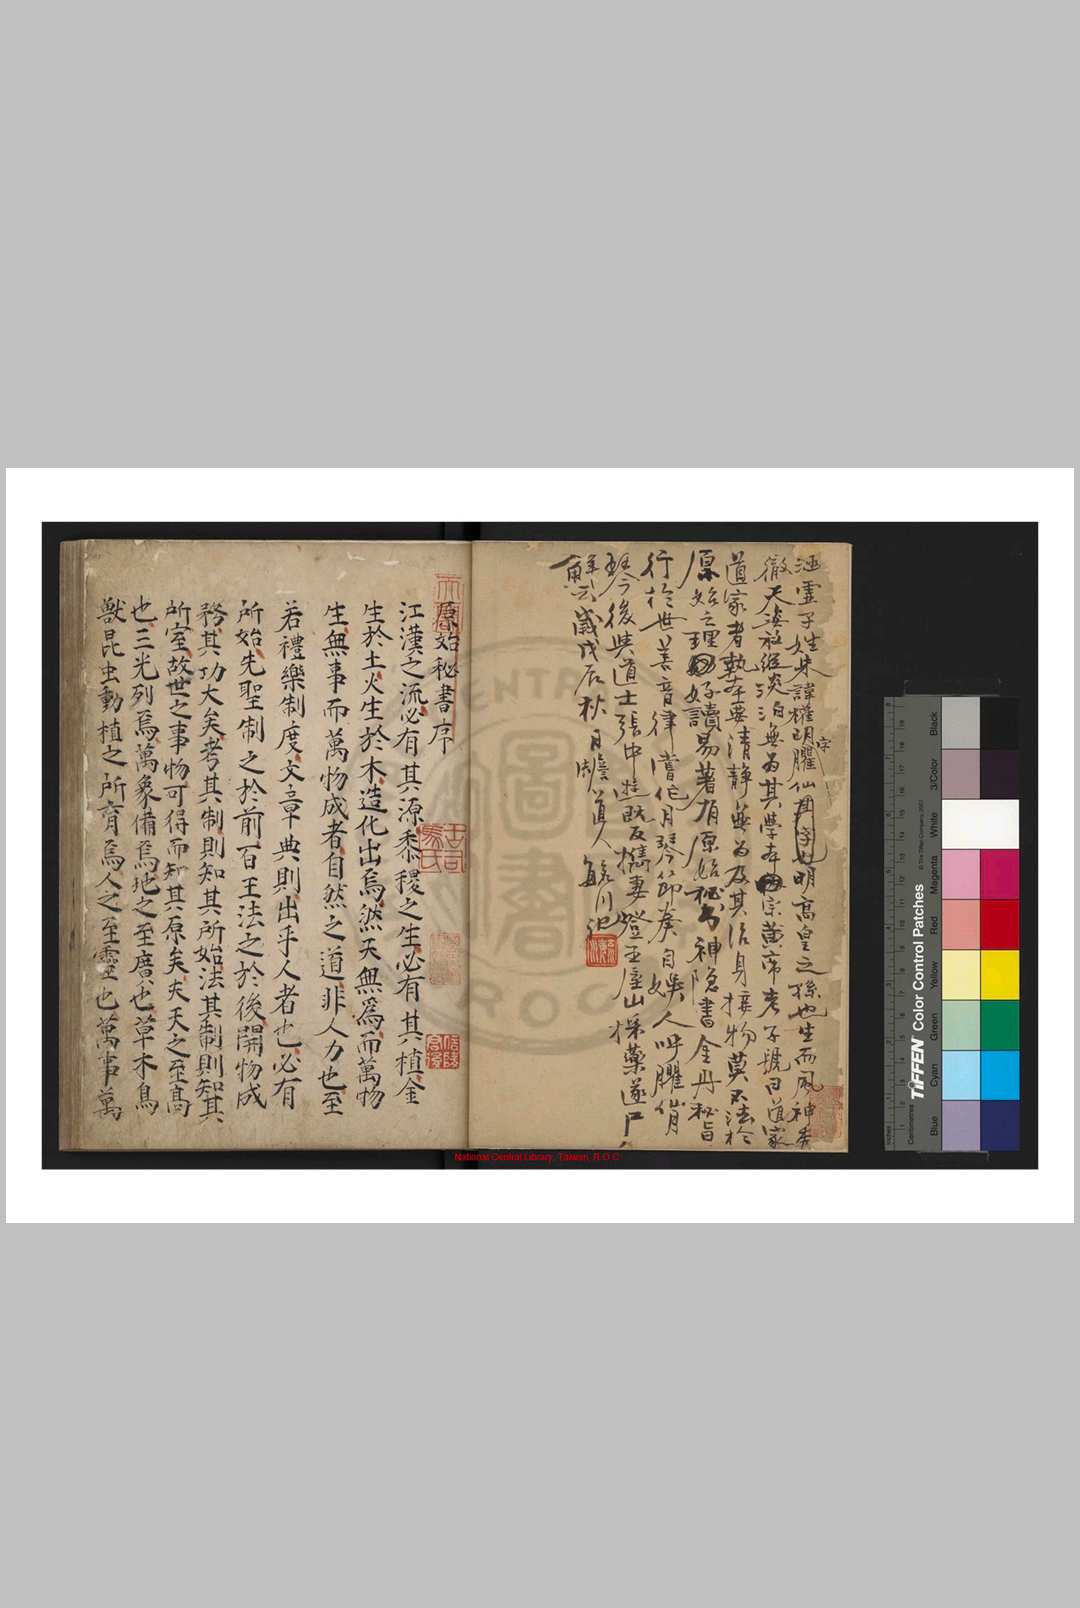 涵靈子姓朱諱權明臞仙字也明高皇之孫也生而風神秀
徹天姿在經淡泊無為其學本宗黃帝老子號曰道家
道家者執本要清靜無為及其治身接物莫不法於
原始之理好讀易著有原始秘書神隱書金丹秘旨
行於世善音律嘗作月琴節奏自娛人呼臞仙
琴今後與道士張中燈王廬山採藥遂尸
解歲戊辰秋月道人記
原始秘書序
江漢之流必有其源黍稷之生必有其植金
生於土火生於木造化出焉然天無為而萬物
生無事而萬物成者自然之道非人力也至
若禮樂制度文章典則出乎人者也必有
所始先聖制之於前百王法之於後開物成
務其功大矣考其制則知其所始法其制則知其
所室故世之事物可得而知其原矣夫天之至高
也三光列焉萬象備焉地之至廣也草木鳥
獸昆虫動植之所育焉人之至靈也萬事萬
National Central Library, Taiwan, R.O.C
TIFFEN Color Control Patches
© The Tiffen Company, 2007
Inches
Centimetres
Blue
Cyan
Green
Yellow
Red
Magenta
White
3/Color
Black